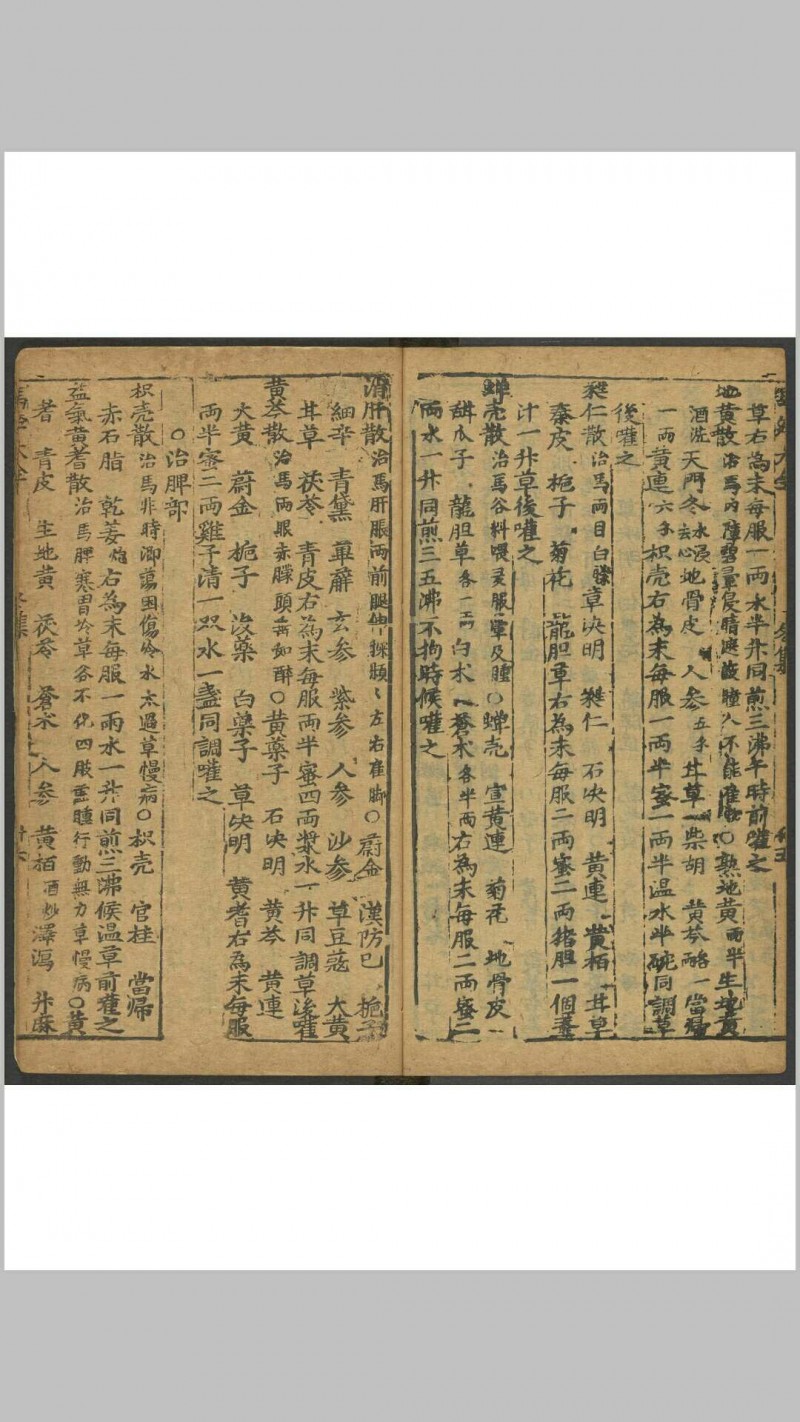 草右為末每服一兩水半升同煎三沸午時前嚾之
地黃散治馬內障雲暈侵睛遮瞳人不能○熟地黃兩半生地黃
酒洗天門冬去心地骨皮人參五分甘草一柴胡黃芩一當歸
一兩黃連六分枳壳右為末每服一兩半蜜一兩半温水半碗同調草
後嚾之
治馬兩目白草决明仁石决明黃連黃栢甘草
秦皮梔子菊花龍胆草右為末每服二兩蜜二兩猪胆一個薑
汁一升草後嚾之
蟬壳散治馬谷料喂及腫○蟬壳宣黃連菊花地骨皮
甜瓜子龍胆草各一兩白术蒼术各半兩右為末每服二兩蜜二
兩水一升同煎三五沸不拘時候嚾之
清肝散治馬肝脹兩前腿左右脚○蔚金漢防已梔子
細辛青黛萆薢玄參紫參人參沙參草豆蔻大黃
甘草茯苓青皮右為末每服兩半蜜四兩漿水一升同調草後嚾
黃芩散治馬兩眼赤頭如醉○黃藥子石决明黃芩黃連
大黃蔚金梔子沒藥白藥子草决明黃耆右為末每服
兩半蜜二兩雞子清一双水一盞同調嚾之
○治脾部
枳壳散治馬非時困傷冷水太過草慢病○枳壳官桂當歸
赤石脂乾姜炮右為末每服一兩水一升同煎三沸候温草前嚾之
益氣黃耆散治馬脾寒胃冷草谷不化四肢腫行動無力草慢病○黃
耆青皮生地黃茯苓蒼术人參黃栢酒炒澤瀉升麻